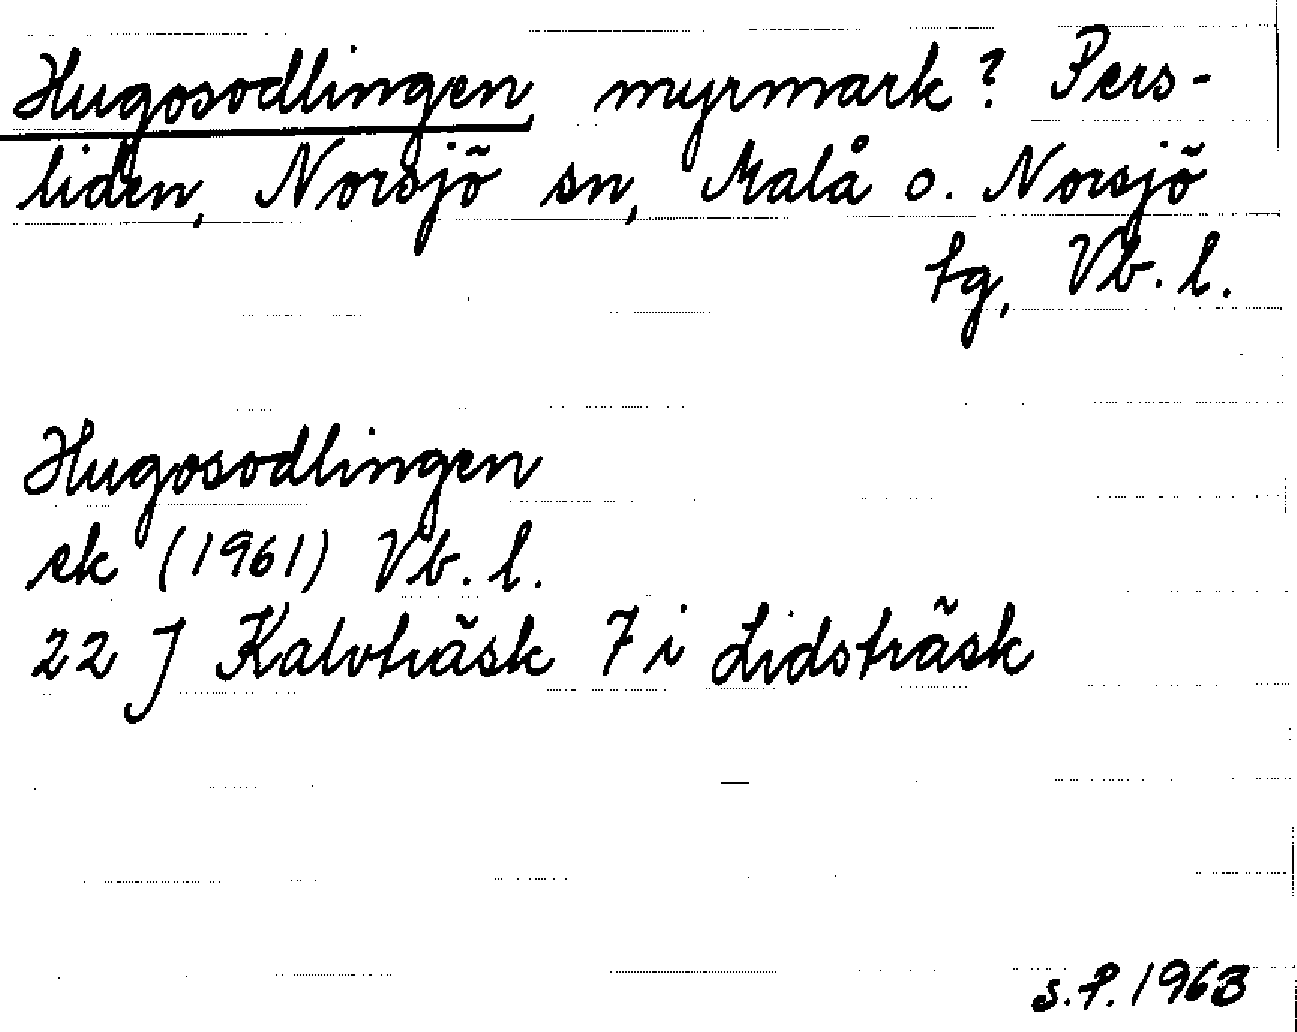 Hugosodlingen, myrmark? Pers-
liden, Norsjö sn, Malå o. Norsjö
tg, Vb. l.
Hugosodlingen
ek (1961) Vb. l.
22 J Kalvträsk 7 i Lidsträsk
s.P. 1963